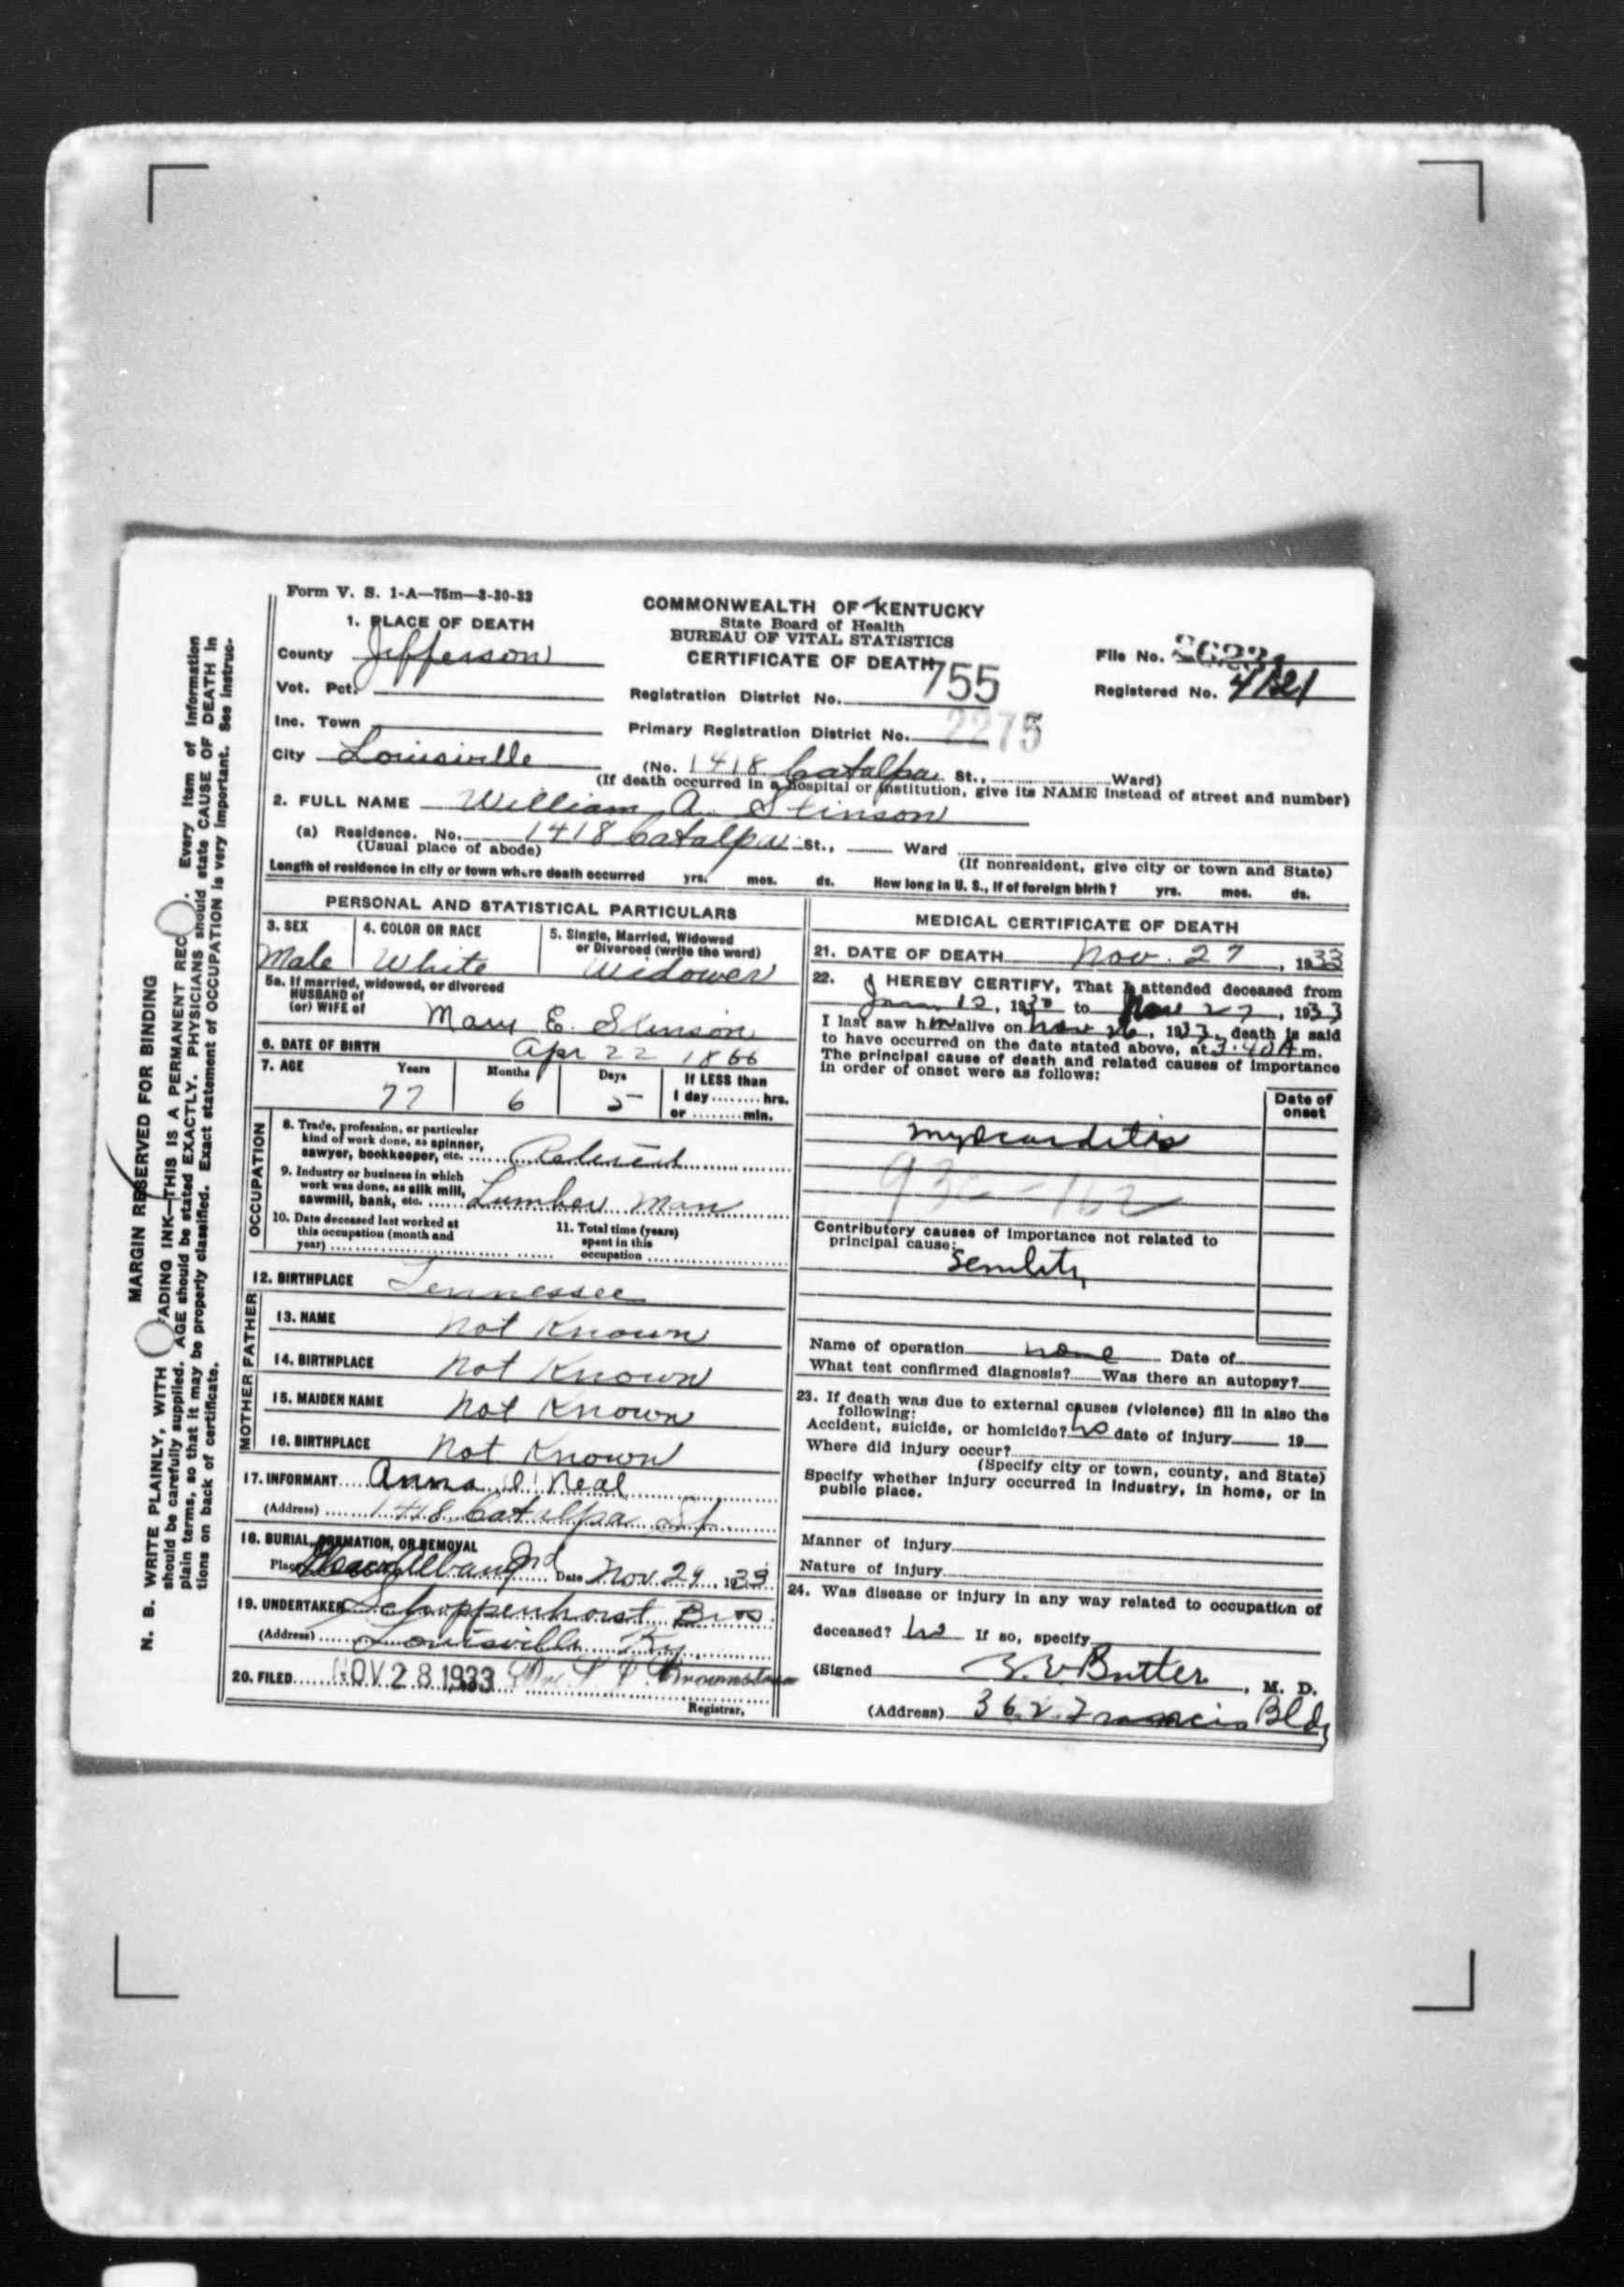 Form V. S. 1-A—75m—3-30-32
COMMONWEALTH OF KENTUCKY
State Board of Health
BUREAU OF VITAL STATISTICS
CERTIFICATE OF DEATH
1. PLACE OF DEATH
County Jefferson
Vot. Pct.
Inc. Town
City Louisville
File No.
Registered No. 4121
Registration District No. 755
Primary Registration District No. 2275
(No. 1418 Catalpa St., Ward)
(If death occurred in a hospital or institution, give its NAME instead of street and number)
2. FULL NAME William A. Stinson
(a) Residence. No. 1418 Catalpa St., Ward
(Usual place of abode) (If nonresident, give city or town and State)
Length of residence in city or town where death occurred yrs. mos. ds. How long in U. S., if of foreign birth? yrs. mos. ds.
PERSONAL AND STATISTICAL PARTICULARS
3. SEX Male
4. COLOR OR RACE White
5. Single, Married, Widowed
or Divorced (write the word)
Widower
5a. If married, widowed, or divorced
HUSBAND of
(or) WIFE of Mary E. Stinson
6. DATE OF BIRTH Apr 22 1866
7. AGE Years Months Days If LESS than
1 day ........ hrs.
or ........ min.
77 6 5
OCCUPATION
8. Trade, profession, or particular
kind of work done, as spinner,
sawyer, bookkeeper, etc. Retired
9. Industry or business in which
work was done, as silk mill,
sawmill, bank, etc. Lumber Man
10. Date deceased last worked at
this occupation (month and
year)
11. Total time (years)
spent in this
occupation
12. BIRTHPLACE Tennessee
FATHER
13. NAME Not Known
14. BIRTHPLACE Not Known
MOTHER
15. MAIDEN NAME Not Known
16. BIRTHPLACE Not Known
17. INFORMANT Anna O'Neal
(Address) 1418 Catalpa St.
18. BURIAL, CREMATION, OR REMOVAL
Place New Albany Ind Date Nov 29, 1933
19. UNDERTAKER Schoppenhorst Bros.
(Address) Louisville Ky.
20. FILED NOV 28 1933
Registrar,
MEDICAL CERTIFICATE OF DEATH
21. DATE OF DEATH Nov. 27, 1933
22. I HEREBY CERTIFY, That I attended deceased from
to Nov 27, 1933
I last saw him alive on Nov 26, 1933, death is said
to have occurred on the date stated above, at 3:40 A m.
The principal cause of death and related causes of importance
in order of onset were as follows:
Date of
onset
Myocarditis
Contributory causes of importance not related to
principal cause:
Senility
Name of operation none Date of
What test confirmed diagnosis? Was there an autopsy?
23. If death was due to external causes (violence) fill in also the
following:
Accident, suicide, or homicide? No date of injury 19
Where did injury occur?
(Specify city or town, county, and State)
Specify whether injury occurred in industry, in home, or in
public place.
Manner of injury
Nature of injury
24. Was disease or injury in any way related to occupation of
deceased? No If so, specify
(Signed Butler, M. D.
(Address) Francis Bldg
MARGIN RESERVED FOR BINDING
N. B. WRITE PLAINLY, WITH FADING INK—THIS IS A PERMANENT REC . Every item of information
should be carefully supplied. AGE should be stated EXACTLY. PHYSICIANS should state CAUSE OF DEATH in
plain terms, so that it may be properly classified. Exact statement of OCCUPATION is very important. See instruc-
tions on back of certificate.